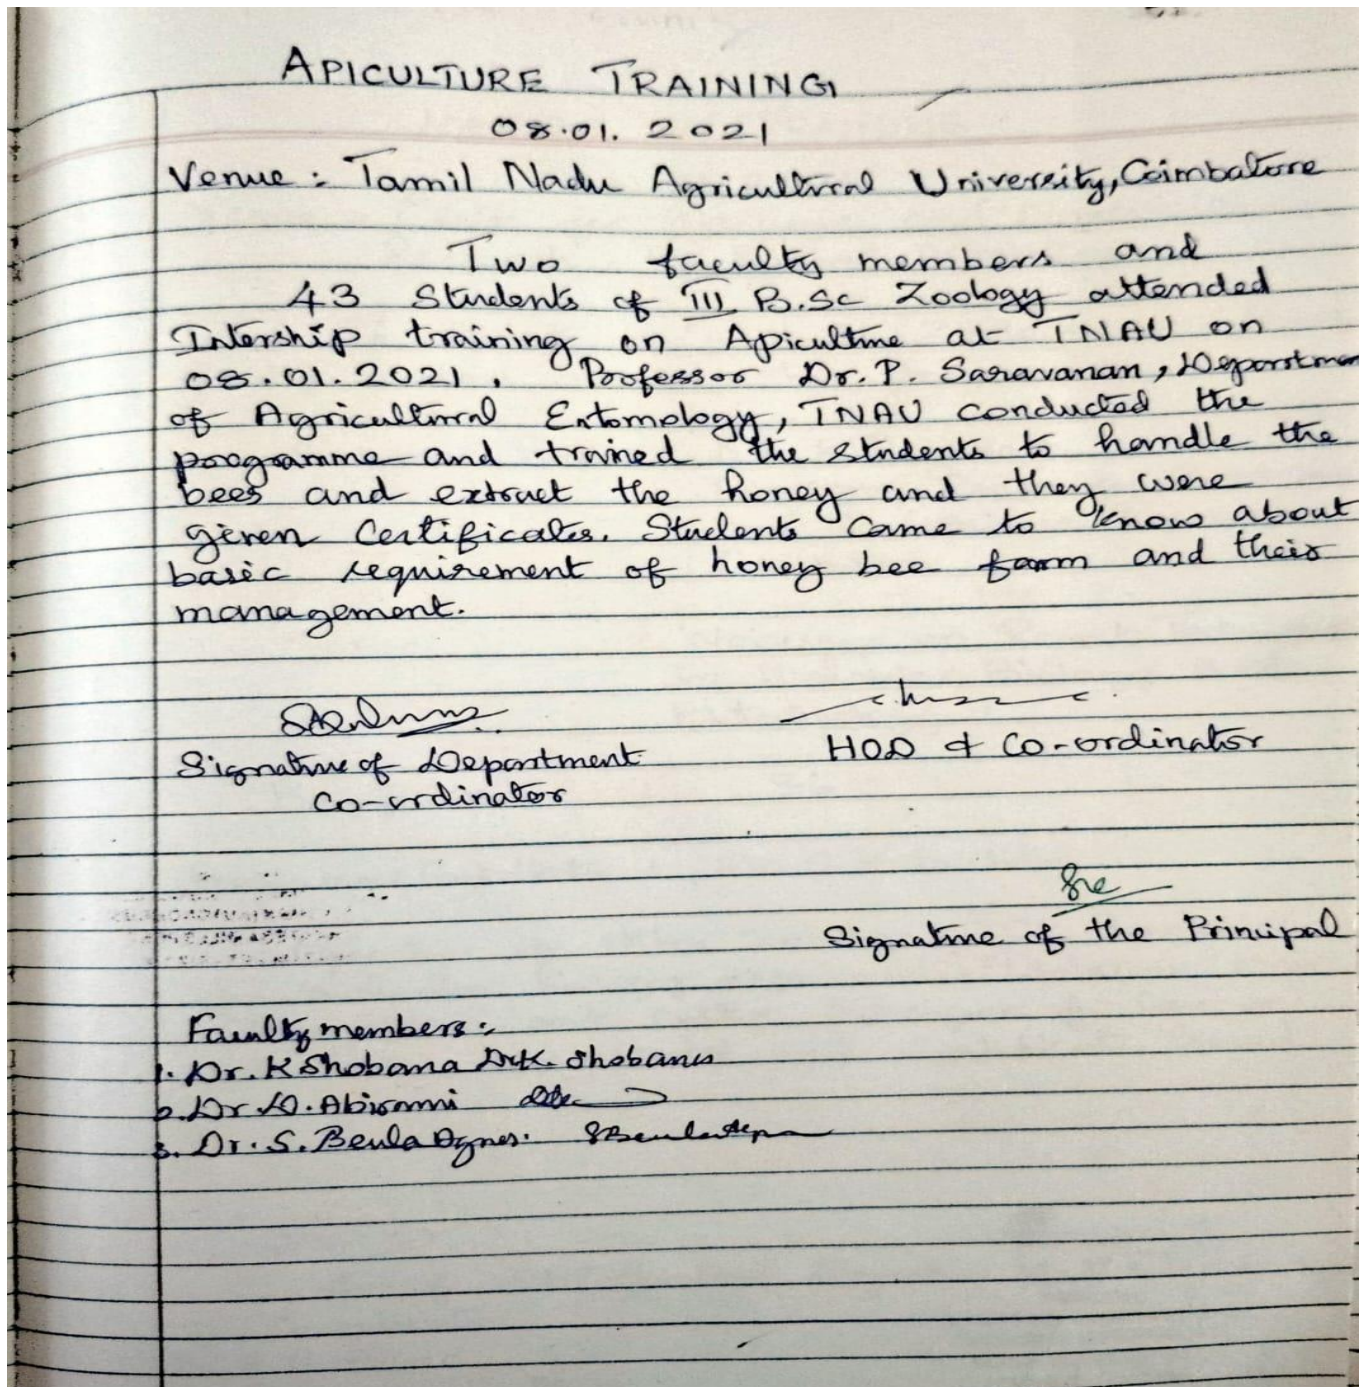 APICULTURE TRAINING
08.01.2021
Venue : Tamil Nadu Agricultural University, Coimbatore
Two faculty members and
43 Students of III B.Sc Zoology attended
Intership training on Apiculture at TNAU on
08.01.2021. Professor Dr. P. Saravanan, Departmen
of Agricultural Entomology, TNAU conducted the
programme and trained the students to handle the
bees and extract the honey and they were
given Certificates. Students came to know about
basic requirement of honey bee farm and their
management.
Signature of Department
Co-ordinator
HOD & Co-ordinator
Signature of the Principal
Faculty members :
1. Dr. K Shobana Dr.K. Shobana
2. Dr D. Abirami
3. Dr. S. Beula Agnes.